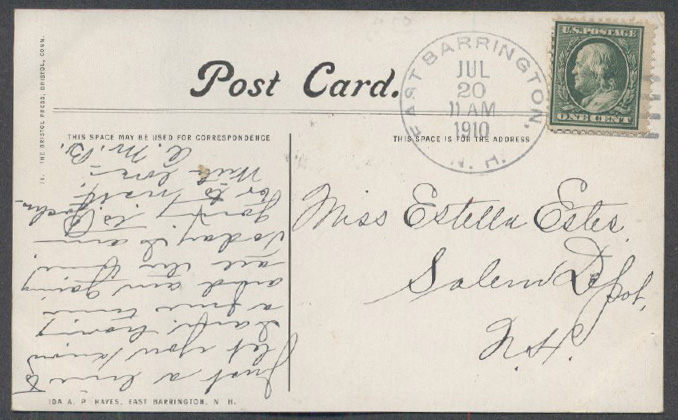 Post Card.
EAST BARRINGTON,
N. H.
JUL
20
11 AM
1910
U.S. POSTAGE
ONE CENT
THE BRISTOL PRESS, BRISTOL, CONN.
THIS SPACE MAY BE USED FOR CORRESPONDENCE
THIS SPACE IS FOR THE ADDRESS
Just a line to
let you know
having
a fine time
and going
today I am
going to
With love
C. M. B.
Miss Estella Estes
Salem Depot,
N.H.
IDA A. P. HAYES, EAST BARRINGTON, N. H.